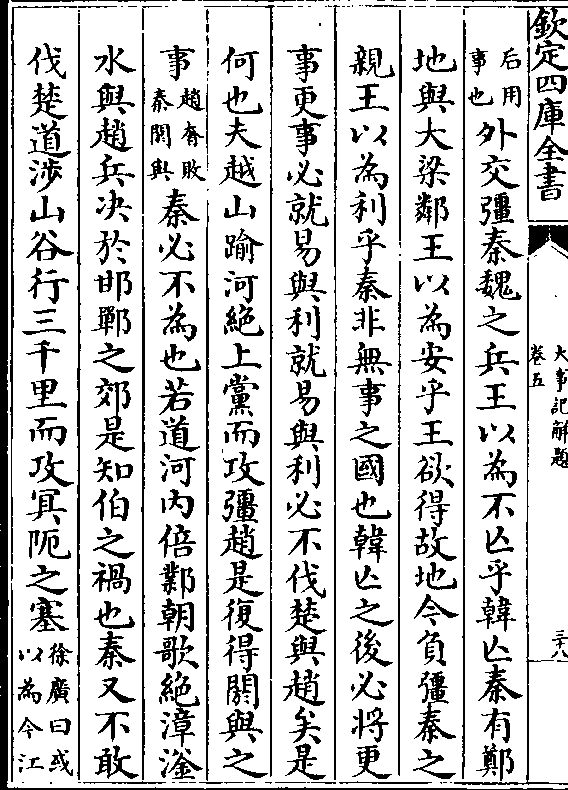 欽定四庫全書
大事記解題
卷五
三十八
后用事也外交彊秦魏之兵王以為不亡乎韓亡秦有鄭
地與大梁鄰王以為安乎王欲得故地今負彊秦之
親王以為利乎秦非無事之國也韓亡之後必將更
事更事必就易與利就易與利必不伐楚與趙矣是
何也夫越山踰河絶上黨而攻彊趙是復得閼與之
事趙奢敗秦閼與秦必不為也若道河内倍鄴朝歌絶漳滏
水與趙兵决於邯鄲之郊是知伯之禍也秦又不敢
伐楚道涉山谷行三千里而攻冥阨之塞徐廣曰或以為今江